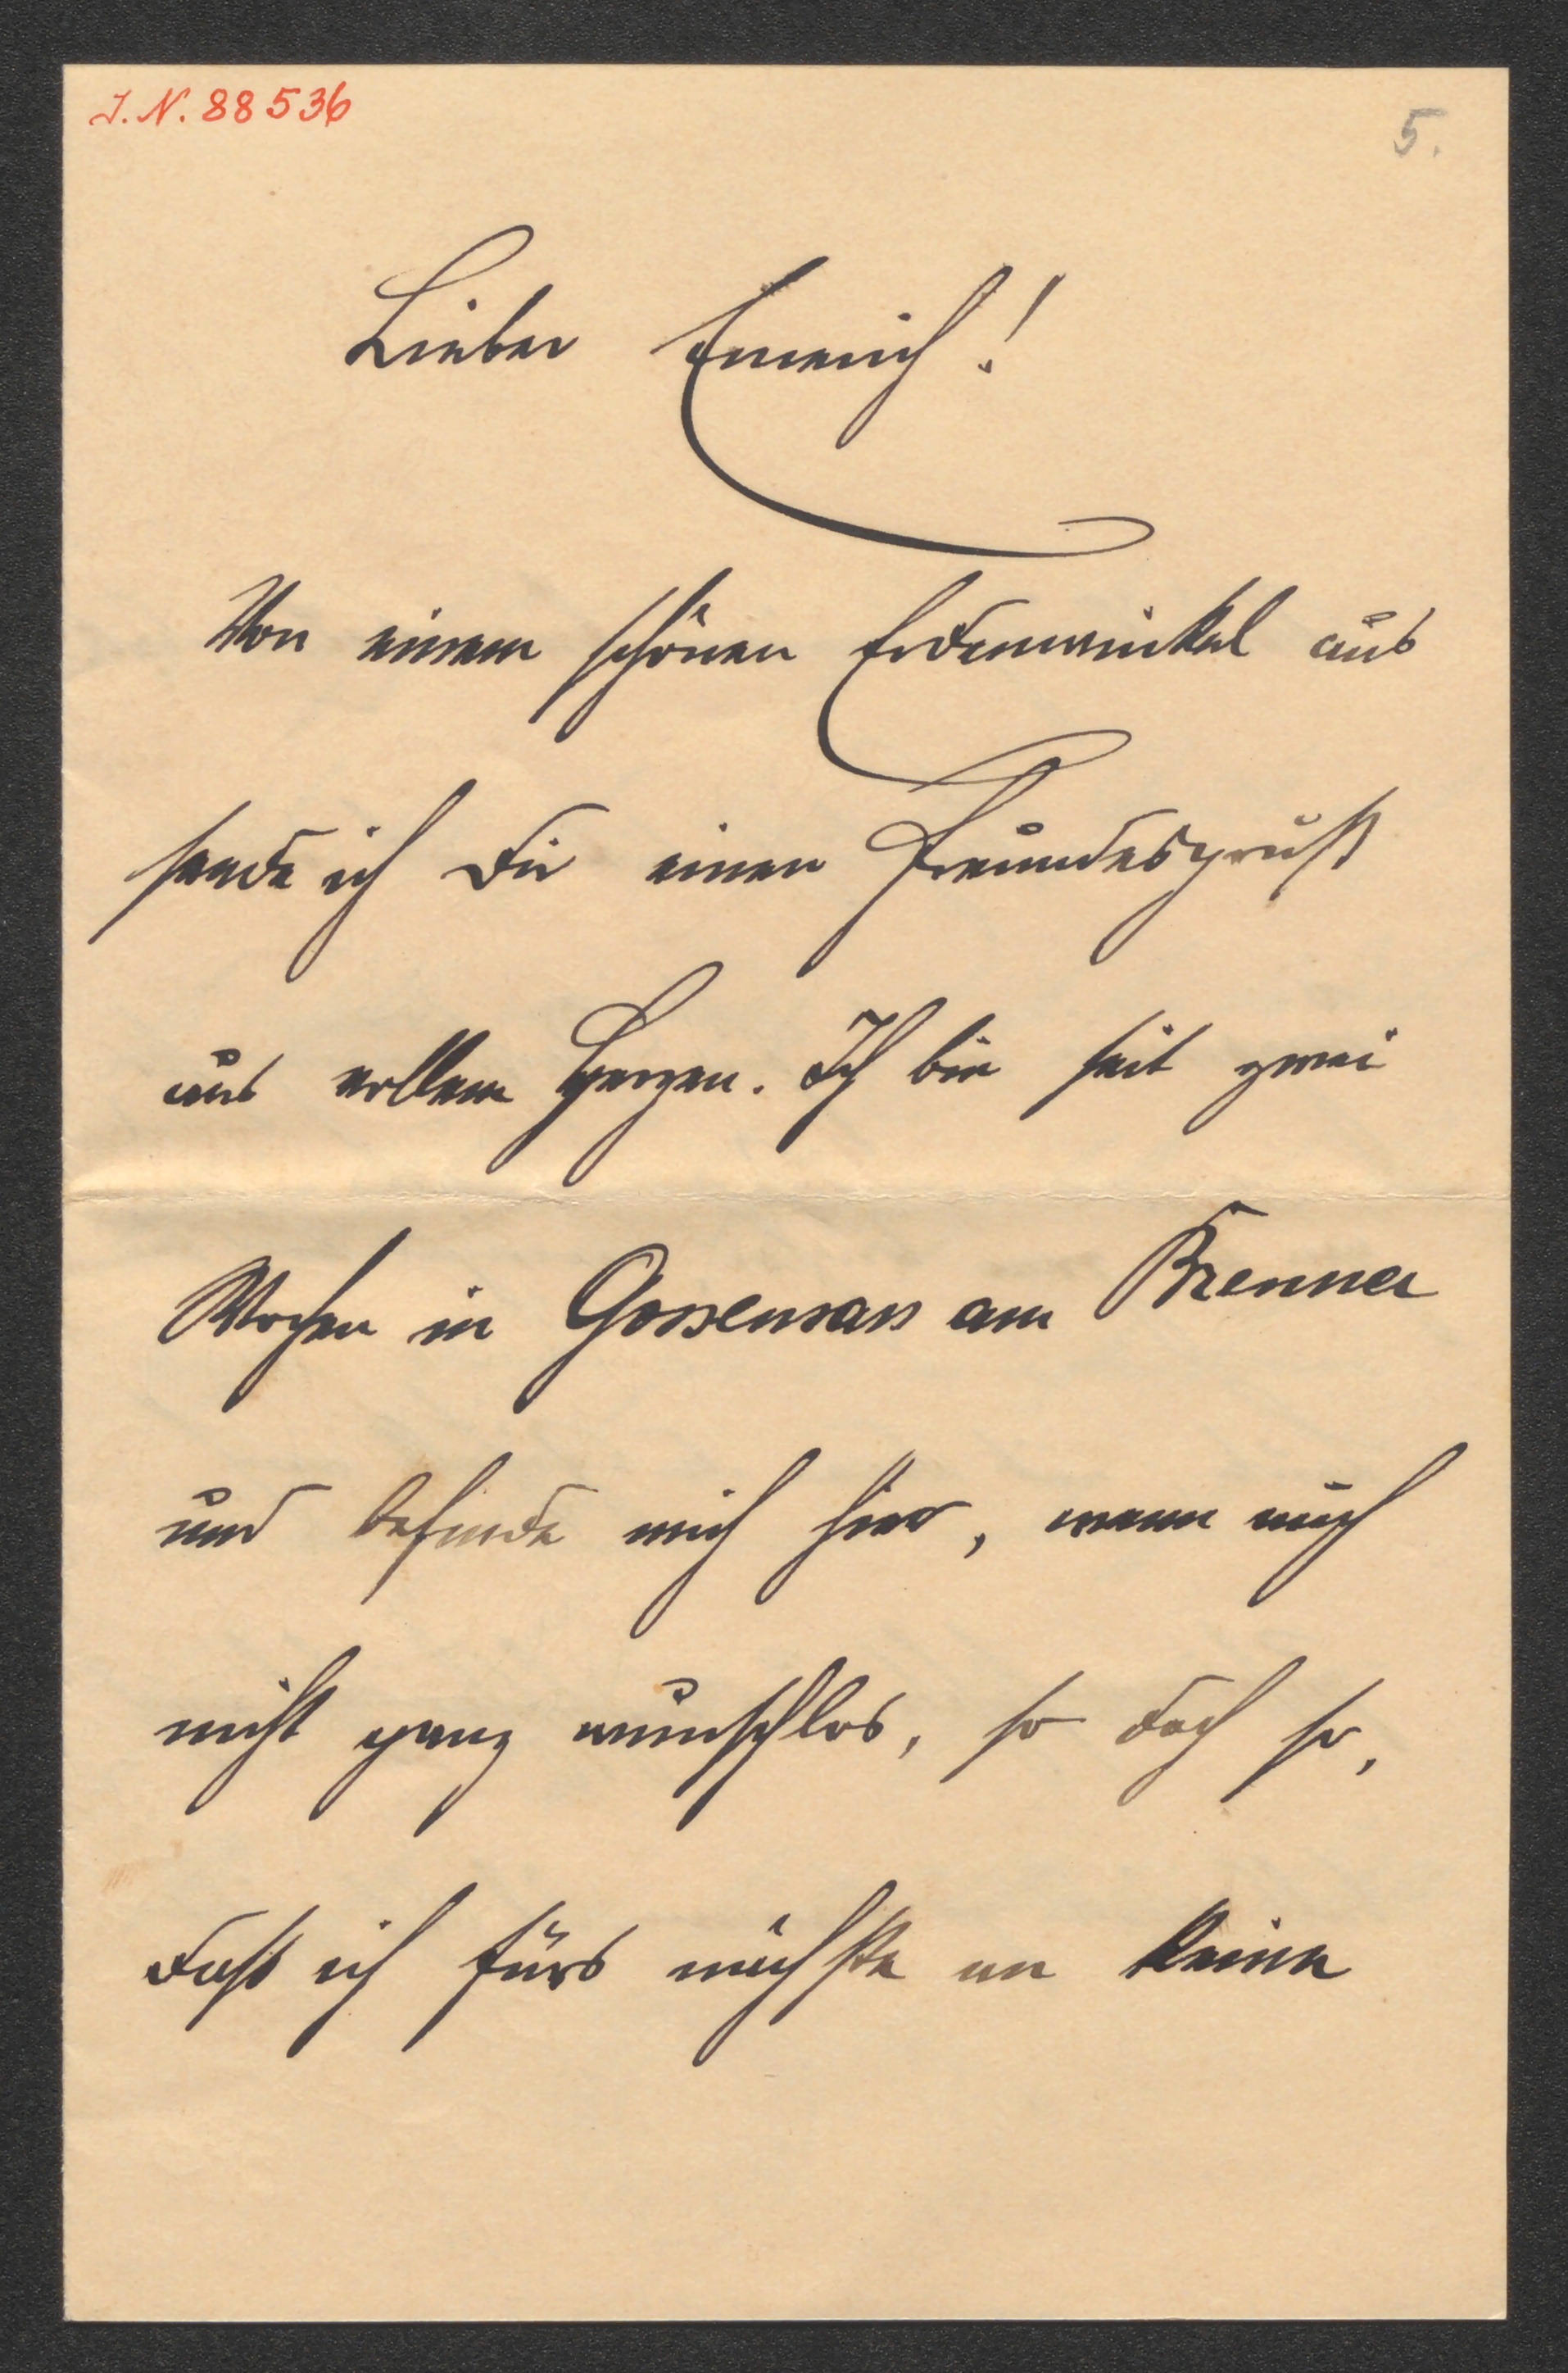 I. N. 88536
5.
Lieber Emerich!
Von einem schönen Erdenwinkel aus
sende ich Dir einen Freundesgruß
aus vollem Herzen. Ich bin seit zwei
Wochen in Gossensass am Brenner
und befinde mich hier, wenn auch
nicht ganz wunschlos, so doch so,
daß ich fürs nächste an keine